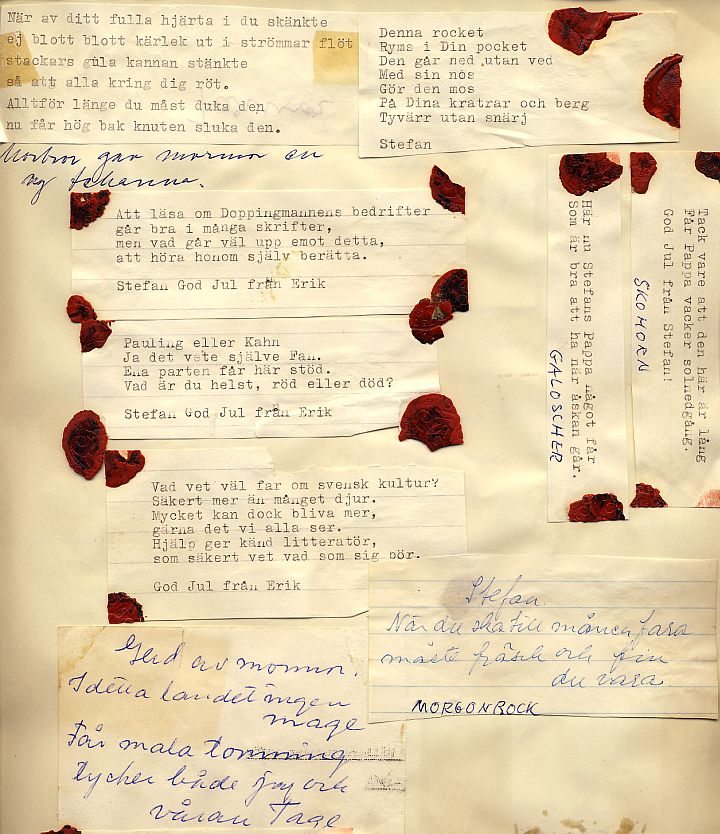 När av ditt fulla hjärta i du skänkte
ej blott blott kärlek ut i strömmar flöt
stackars gula kannan stänkte
så att alla kring dig röt.
Alltför länge du måst duka den
nu får hög bak knuten sluka den.
Morbror gav mormor en
ny tekanna.
Denna rocket
Ryms i Din pocket
Den går ned utan ved
Med sin nos
Gör den mos
På Dina kratrar och berg
Tyvärr utan snärj
Stefan
Att läsa om Doppingmannens bedrifter
går bra i många skrifter,
men vad går väl upp emot detta,
att höra honom själv berätta.
Stefan God Jul från Erik
Pauling eller Kahn
Ja det vete själve Fan.
Ena parten får här stöd.
Vad är du helst, röd eller död?
Stefan God Jul från Erik
Vad vet väl far om svensk kultur?
Säkert mer än månget djur.
Mycket kan dock bliva mer,
gärna det vi alla ser.
Hjälp ger känd litteratör,
som säkert vet vad som sig bör.
God Jul från Erik
Här nu Stefans Pappa något får
Som är bra att ha när åskan går.
GALOSCHER
Tack vare att den här är lång
Får Pappa vacker solnedgång.
God Jul från Stefan!
SKOHORN
Stefan.
När du ska till månen fara
måste fräsch och fin
du vara.
MORGONROCK
Gerd av mormor.
I detta landet ingen
mage
Får mala tomning
tycker både jag och
våran Tage